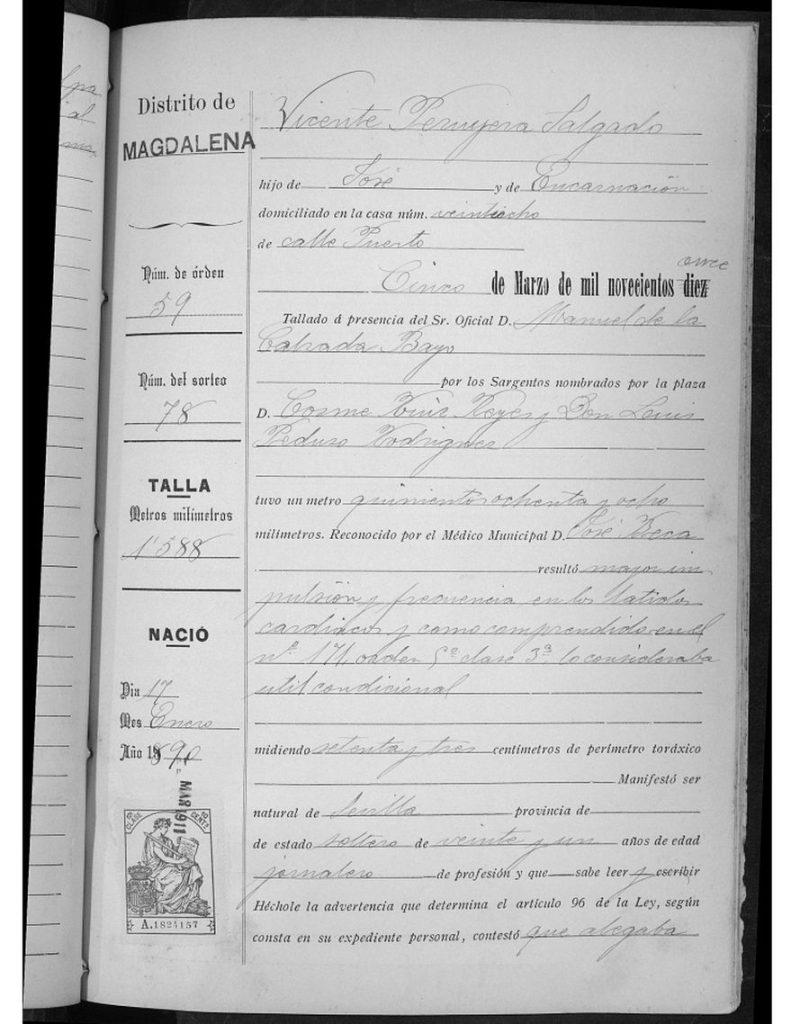 Distrito de
MAGDALENA
Núm. de órden
59
Núm. del sorteo
78
TALLA
Metros milimetros
1'588
NACIÓ
Dia 17
Mes Enero
Año 1890
MAR 1911
10 CENTS
A.1824157
Vicente Salgado
hijo de José y de Encarnación
domiciliado en la casa núm. veintiocho
de calle Puerto
once
Cinco de Marzo de mil novecientos diez
Tallado á presencia del Sr. Oficial D. Manuel de la
Calzada Bayo
por los Sargentos nombrados por la plaza
D. Cosme Ruiz Reyes y Don Luis
Rodriguez
tuvo un metro quinientos ochenta y ocho
milimetros. Reconocido por el Médico Municipal D. José
resultó mayor im
pulsión y frecuencia en los latidos
cardiacos y como comprendido en el
nº 171, orden 5º clase 3ª lo consideraba
util condicional
midiendo setenta y tres centímetros de perímetro toráxico
Manifestó ser
natural de Sevilla provincia de
de estado soltero de veinte y un años de edad
jornalero de profesión y que sabe leer y escribir
Héchole la advertencia que determina el artículo 96 de la Ley, según
consta en su expediente personal, contestó que alegaba